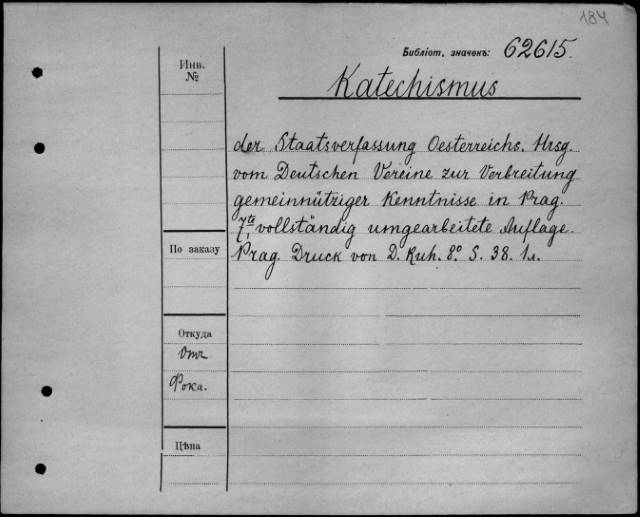 184
Библіот. значенъ: 62615.
Katechismus
Инв.
№
der Staatsverfassung Oesterreichs. Hrsg.
vom Deutschen Vereine zur Verbreitung
gemeinnütziger Kenntnisse in Prag.
7te vollständig umgearbeitete Auflage.
Prag. Druck von D. Kuh. 8° S. 38. 1л.
По заказу
Откуда
Отъ
Фока.
Цѣна